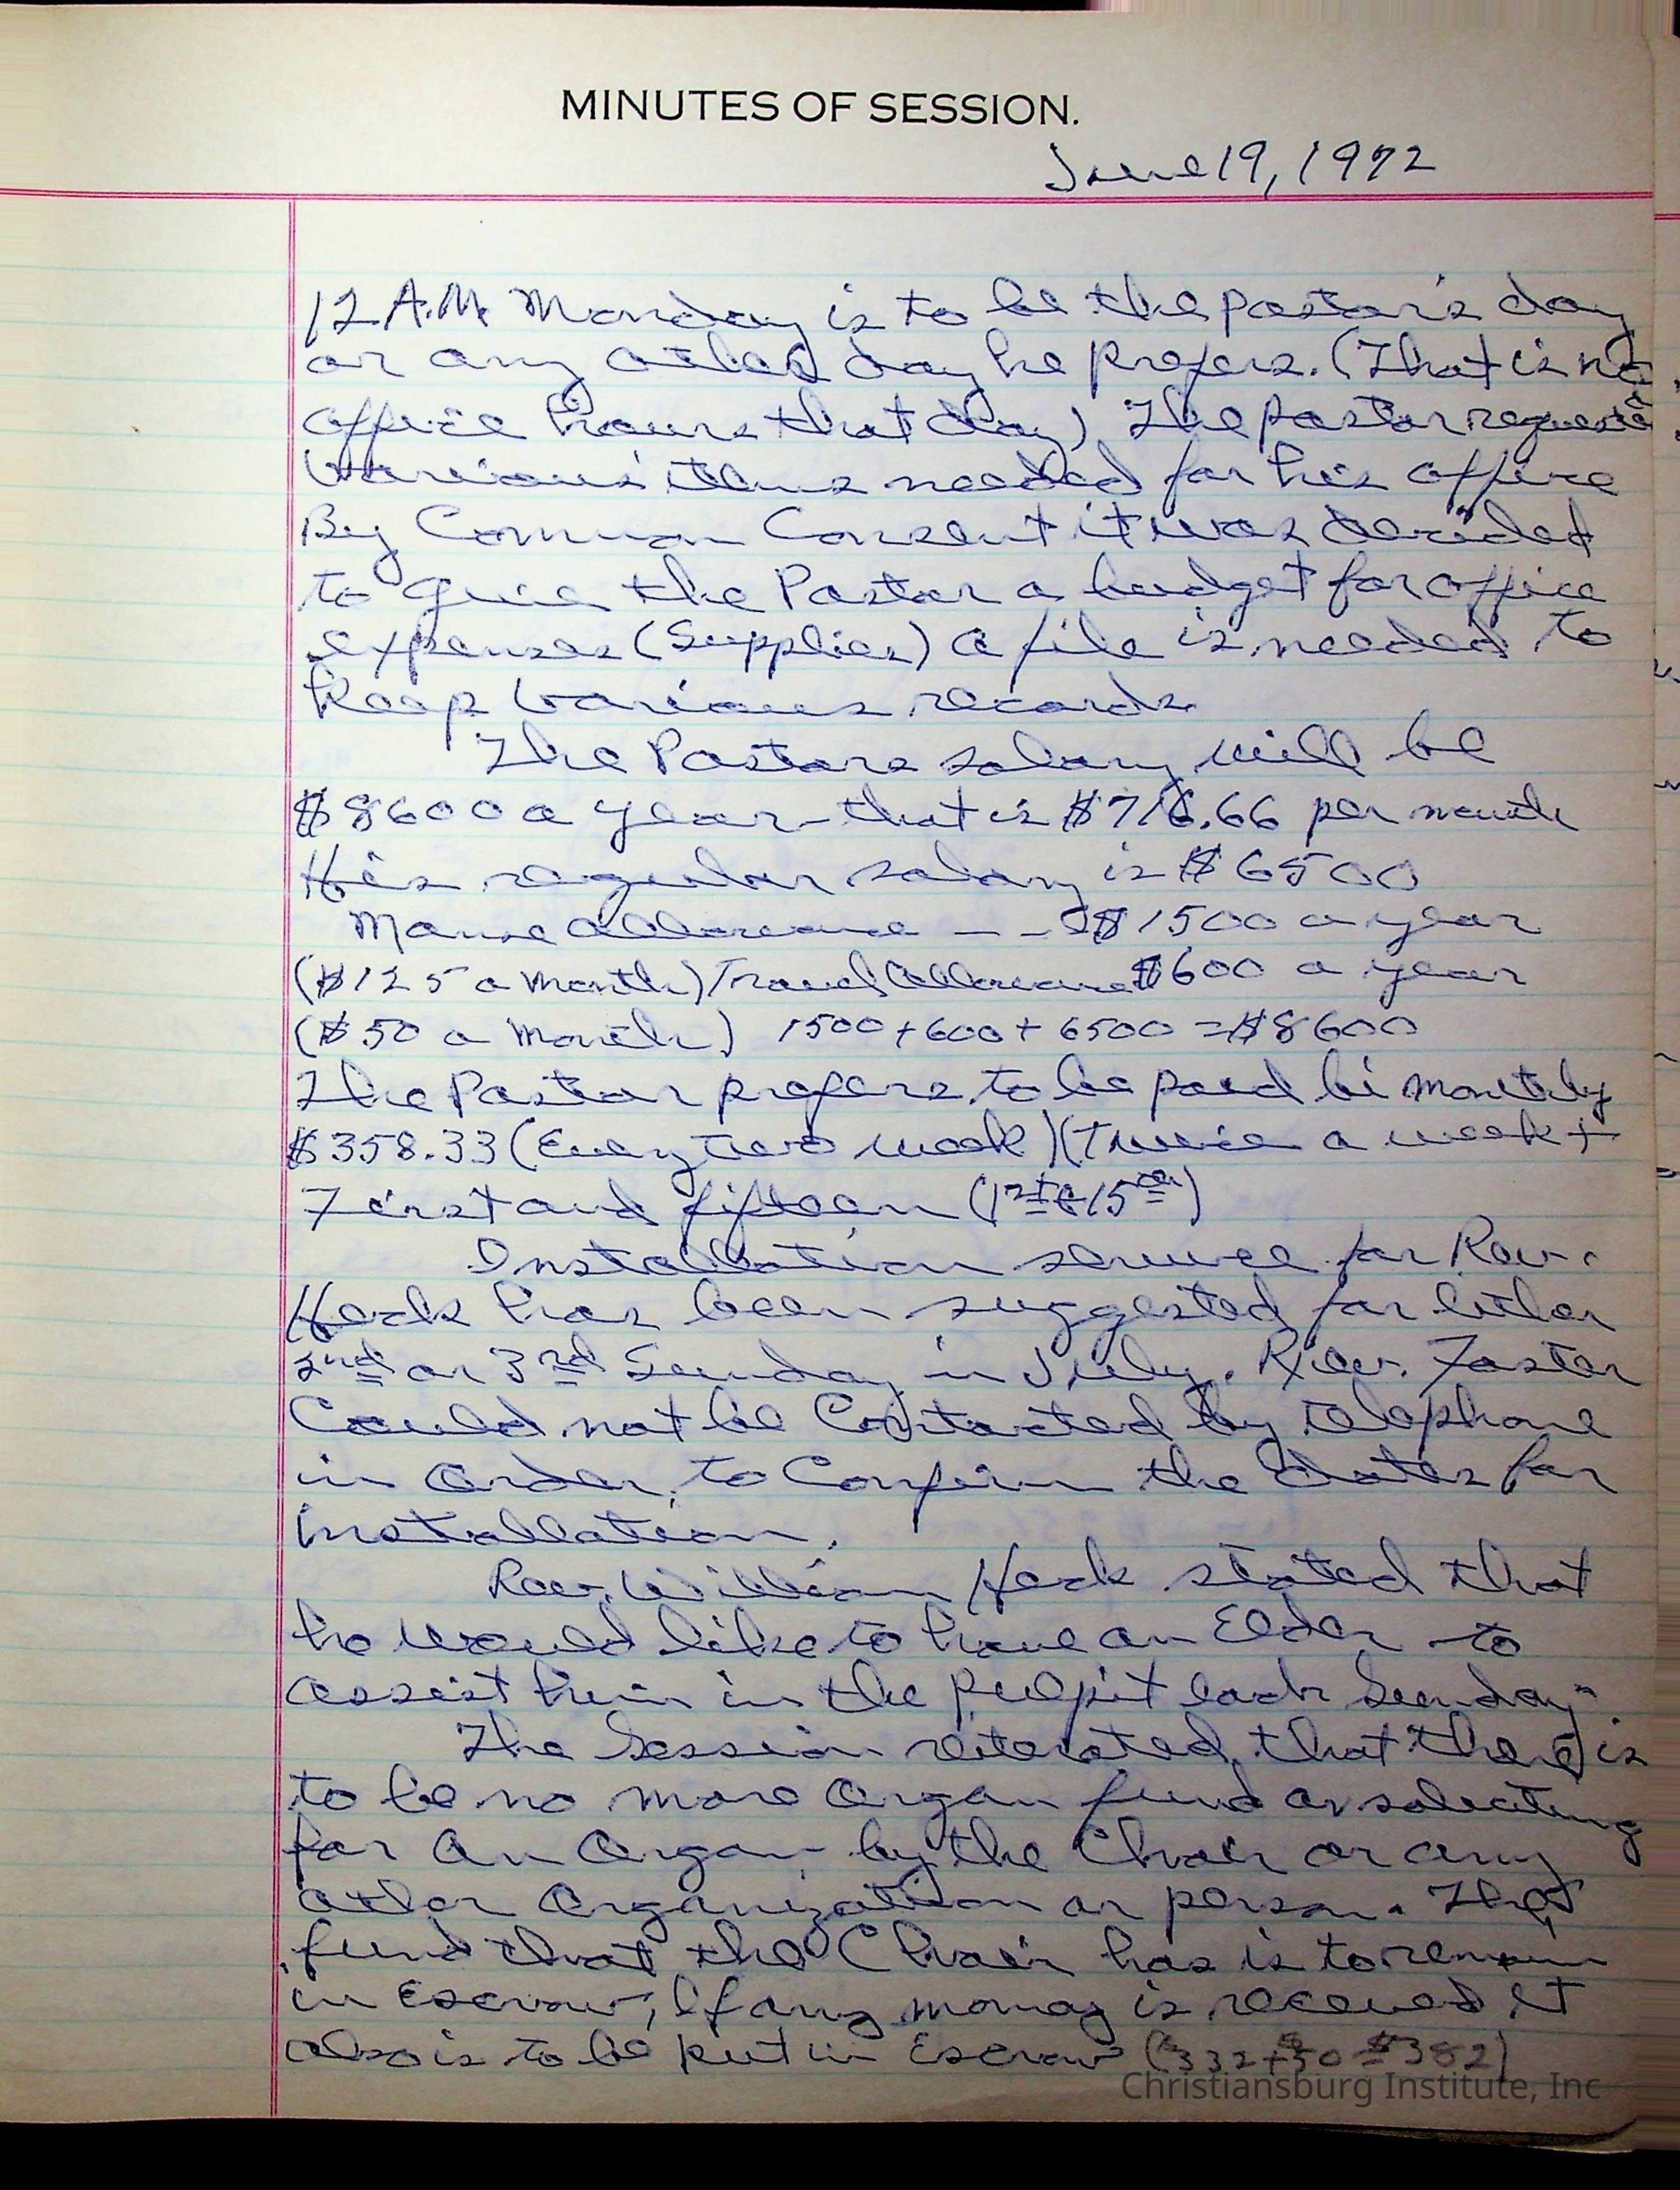 MINUTES OF SESSION.
June 19, 1972
12 A.M. Monday is to be the Pastor's day
or any other day he prefers. (That is no
office hours that day) The pastor requested
various items needed for his office
By Common Consent it was decided
to give the Pastor a budget for office
expenses (Supplies) a file is needed to
keep various records.
The Pastors salary will be
$8600 a year - that is $716.66 per month
His regular salary is $6500
Manse Allowance - - $1500 a year
($125 a month) Travel Allowance $600 a year
($50 a month) 1500 + 600 + 6500 = $8600
The Pastor prefers to be paid bi monthly
$358.33 (Every two week) (Twice a week +
First and fifteen (1st & 15th)
Installation service for Rev.
Heck has been suggested for either
2nd or 3rd Sunday in July. Rev. Foster
Could not be Contacted by telephone
in order to Confirm the dates for
installation.
Rev. William Heck stated that
he would like to have an Elder to
assist him in the pulpit each Sunday
The Session reiterated that there is
to be no more Organ fund or soliciting
for an Organ by the Choir or any
other Organization or person. The
fund that the Choir has is to remain
in Escrow, If any money is received it
also is to be put in Escrow ($332+$50=$382)
Christiansburg Institute, Inc